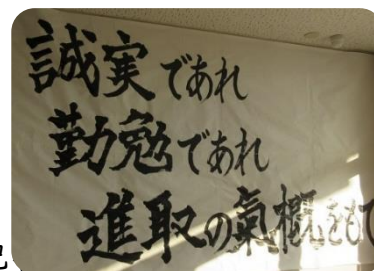 誠実であれ
勤勉であれ
進取の氣概をもて